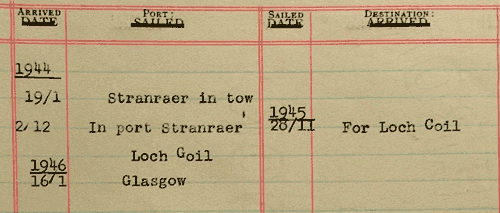 ARRIVED DATE PORT: SAILED SAILED DATE DESTINATION: ARRIVED
1944
19/1 Stranraer in tow
1945
2/12 In port Stranraer' 28/II For Loch Coil
Loch Goil
1946
16/1 Glasgow